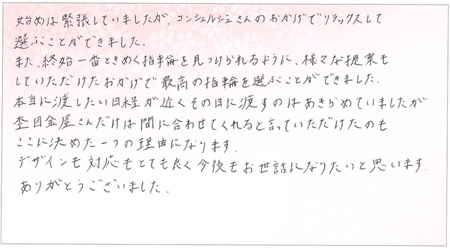 始めは緊張していましたが、コンシェルジュさんのおかげでリラックスして
選ぶことができました。
また、終始一番ときめく指輪を見つけられるように、様々な提案も
していただけたおかげで最高の指輪を選ぶことができました。
本当に渡したい日程が近くその日に渡すのはあきらめていましたが
杢目金屋さんだけは間に合わせてくれると言っていただけたのも
ここに決めた一つの理由になります.
デザインも対応もとても良く今後もお世話になりたいと思います.
ありがとうございました.